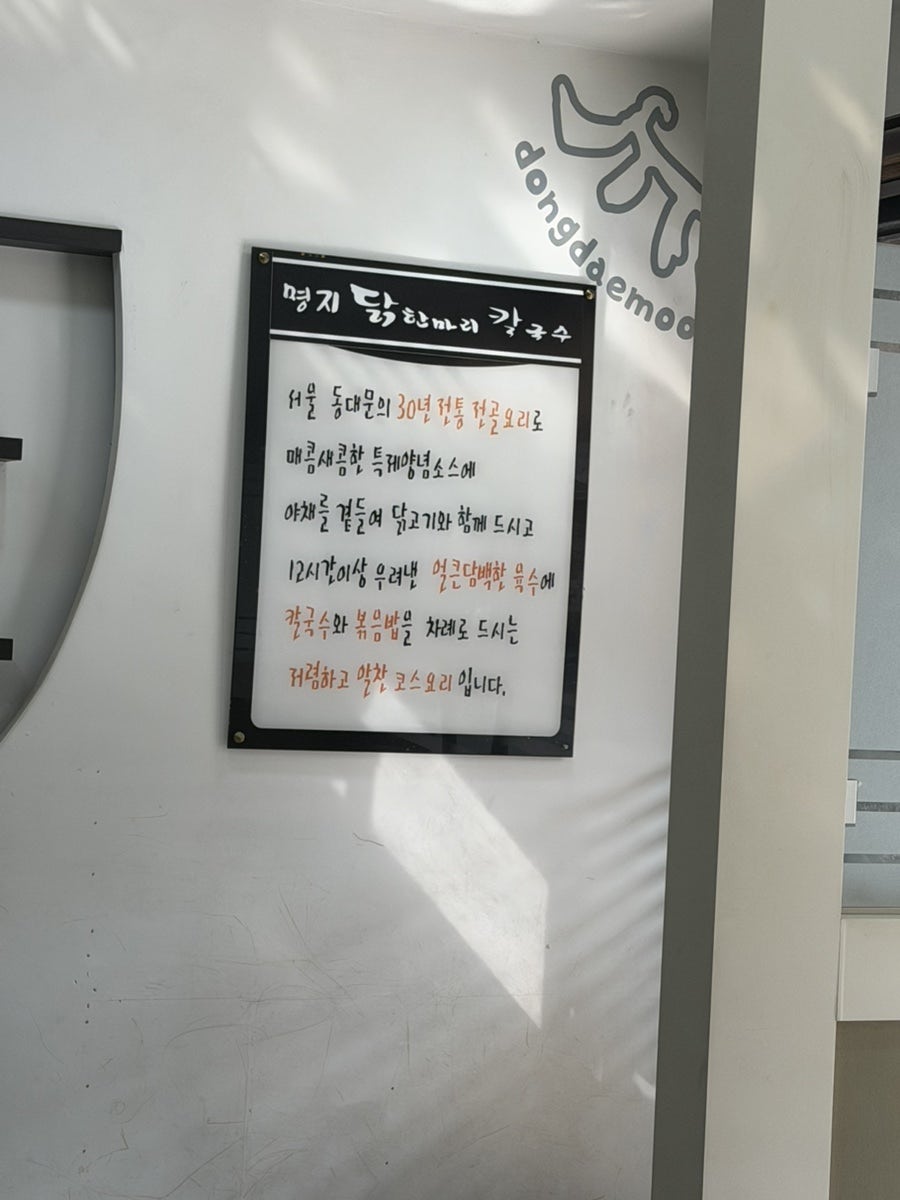 명지 닭한마리 칼국수
서울 동대문의 30년 전통 전골요리로
매콤새콤한 특제양념소스에
야채를 곁들여 닭고기와 함께 드시고
12시간이상 우려낸 얼큰담백한 육수에
칼국수와 볶음밥을 차례로 드시는
저렴하고 알찬 코스요리 입니다.
dongdaemoo